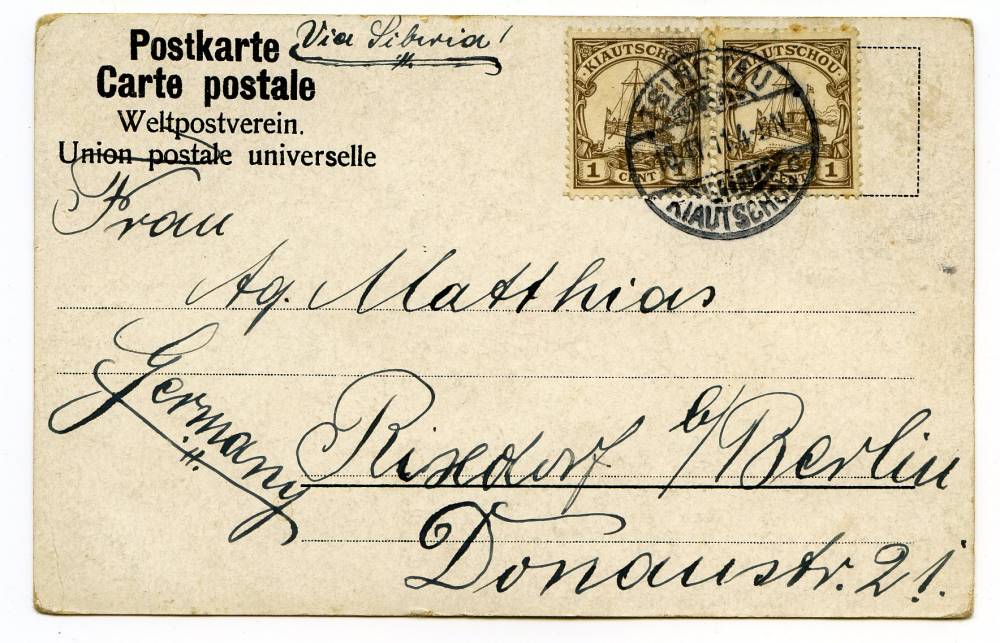 Postkarte
Via Siberia!
Carte postale
Weltpostverein.
Union postale universelle
KIAUTSCHOU
1 CENT 1
KIAUTSCHOU
1 CENT 1
TSINGTAU
KIAUTSCHOU
Frau
Ag. Matthias
Germany
Rixdorf b/Berlin
Donaustr. 21.